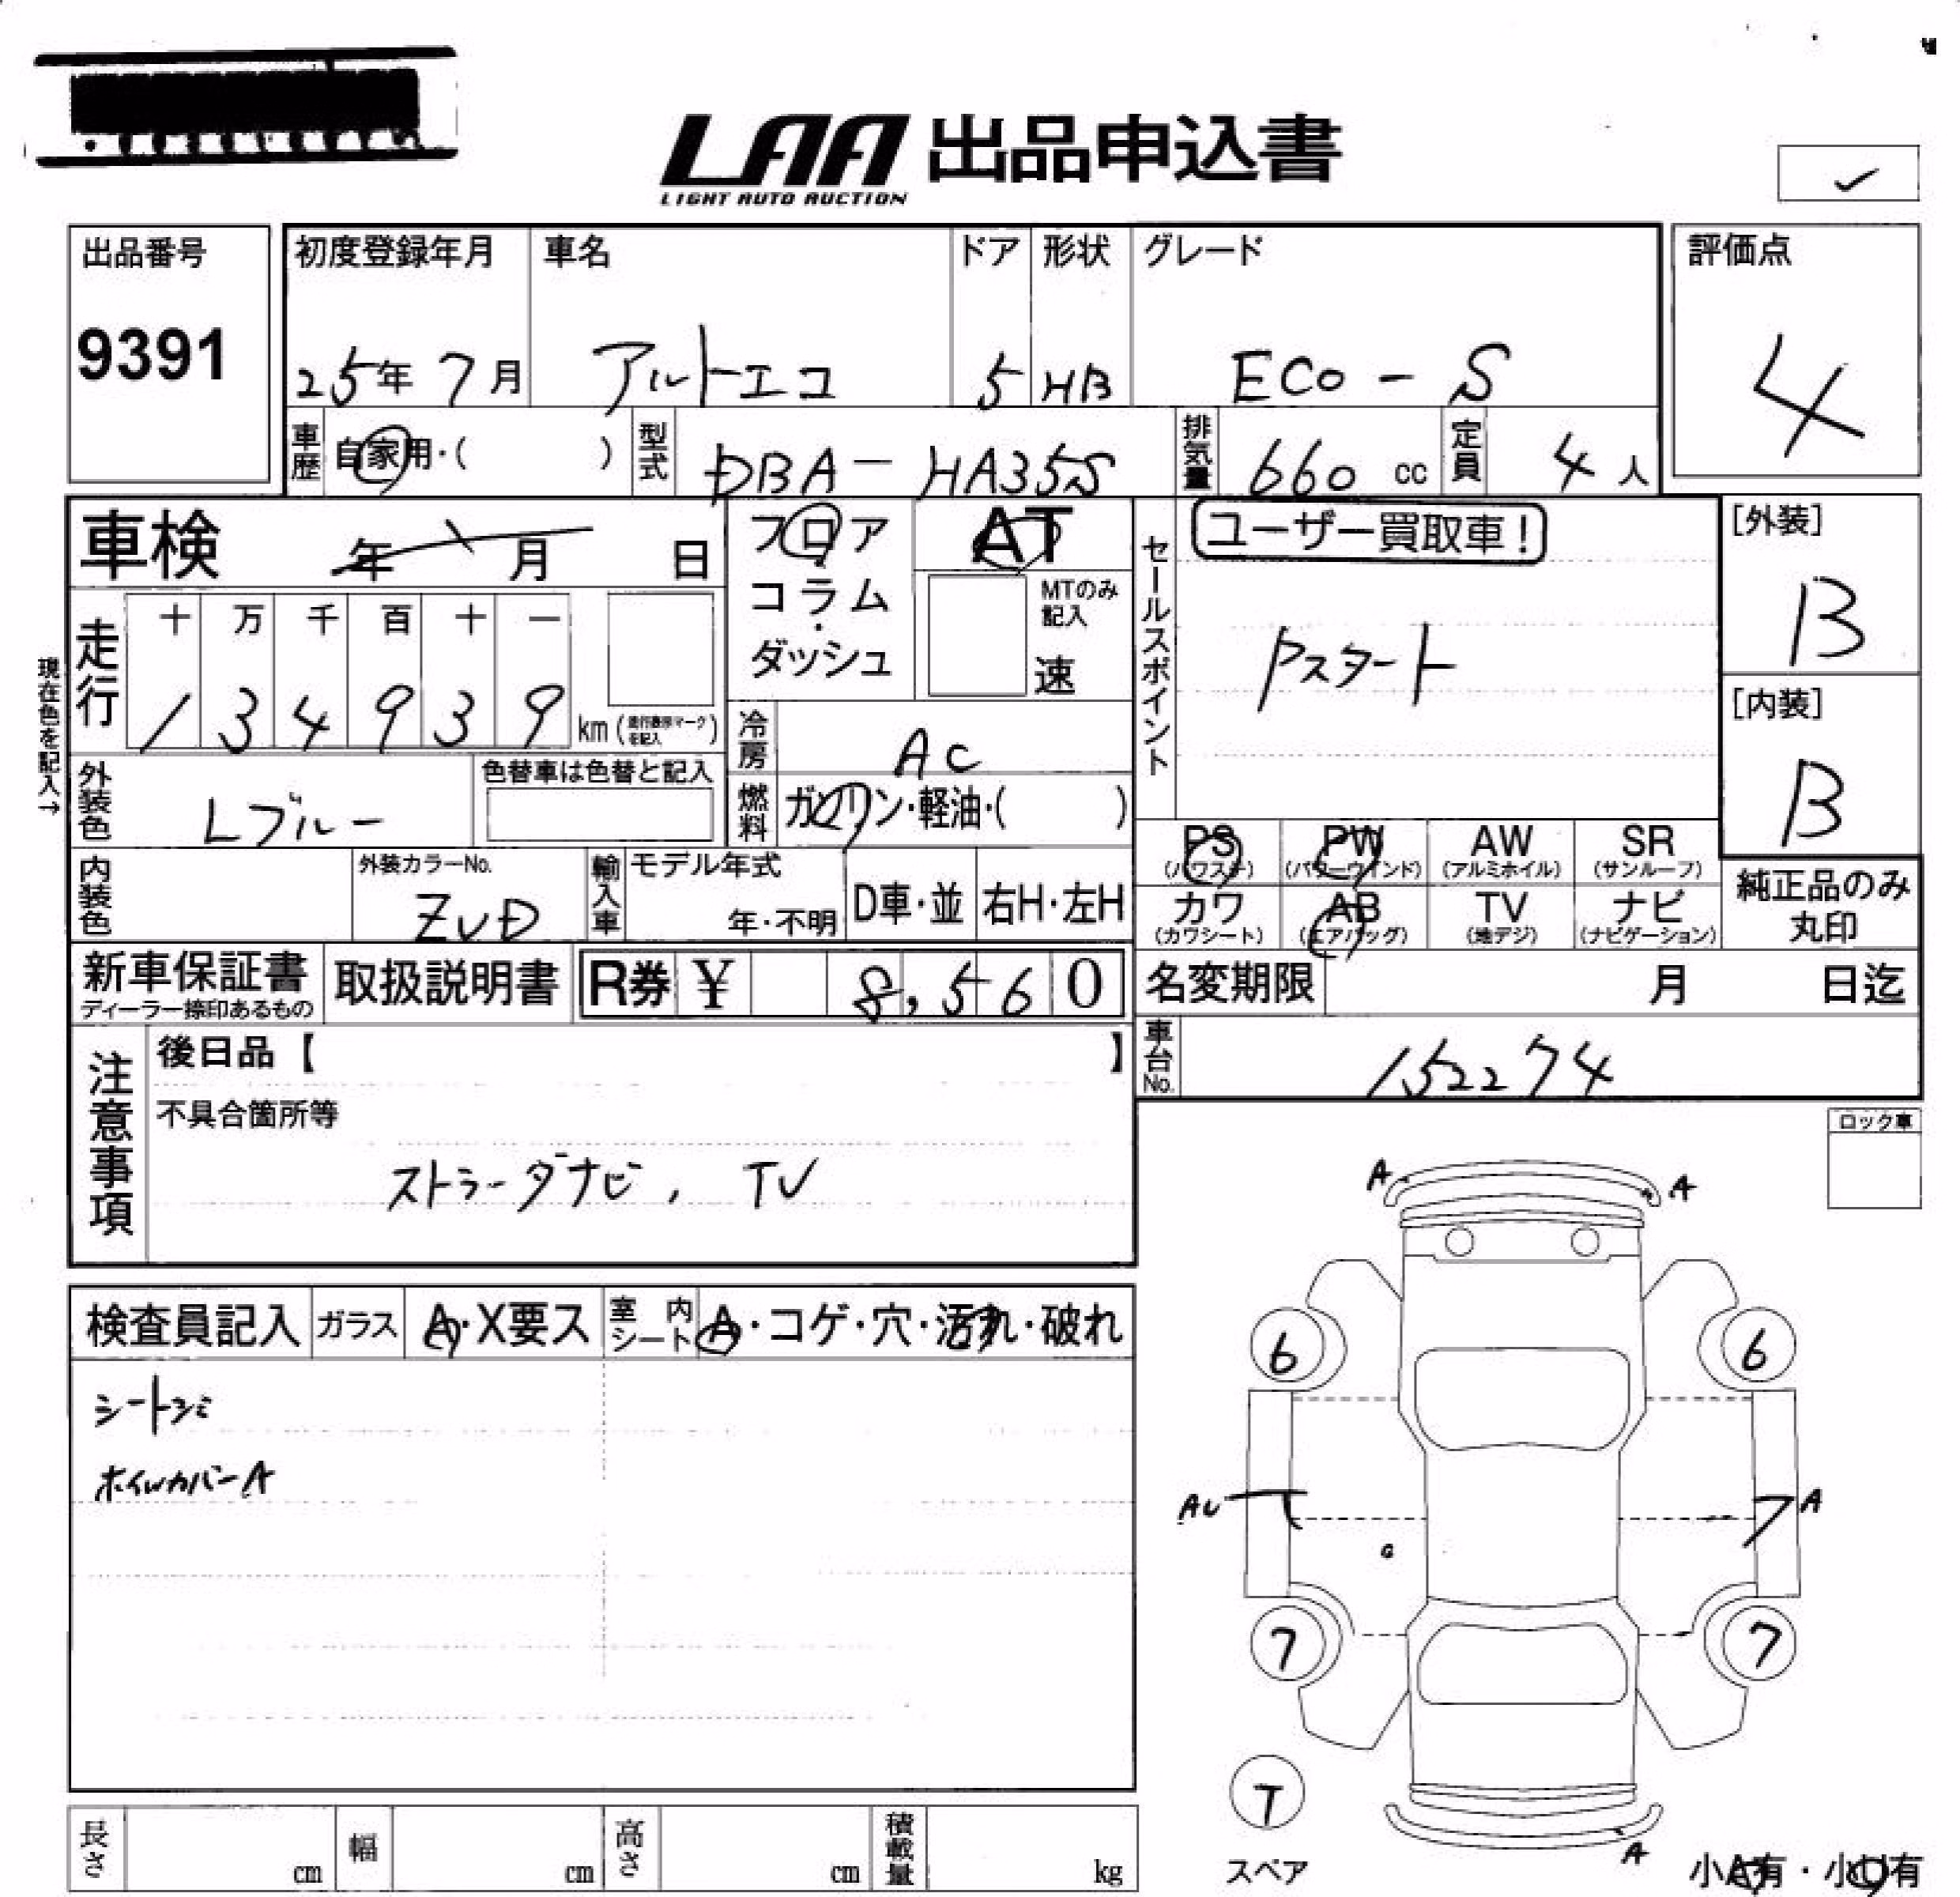 LAA 出品申込書
LIGHT AUTO AUCTION
出品番号
9391
初度登録年月
25年7月
車名
アルトエコ
ドア
5
形状
HB
グレード
ECO-S
評価点
4
車歴
自家用・( )
型式
DBA-HA35S
排気量
660 cc
定員
4人
車検
年 月 日
フロア
コラム
・
ダッシュ
AT
MTのみ
記入
速
セールスポイント
ユーザー買取車!
Pスタート
[外装]
B
[内装]
B
現在色を記入→
走行
十 万 千 百 十 一
1 3 4 9 3 9 km (走行表示マークを記入)
冷房
AC
燃料
ガソリン・軽油・( )
外装色
Lブルー
色替車は色替と記入
内装色
外装カラーNo.
ZVD
輸入車
モデル年式
年・不明
D車・並
右H・左H
PS
(パワステ)
PW
(パワーウインド)
AW
(アルミホイル)
SR
(サンルーフ)
カワ
(カワシート)
AB
(エアバッグ)
TV
(地デジ)
ナビ
(ナビゲーション)
純正品のみ
丸印
新車保証書
ディーラー捺印あるもの
取扱説明書
R券 ¥ 8,560
名変期限
月 日迄
車台No.
152274
注意事項
後日品【 】
不具合箇所等
ストラーダナビ, TV
ロック車
検査員記入
ガラス
A・X要ス
室内シート
A・コゲ・穴・汚れ・破れ
シートシミ
ホイルカバーA
A
A
6
6
AU
A
G
7
7
T
スペア
A
小A有・小U有
長さ
cm
幅
cm
高さ
cm
積載量
kg